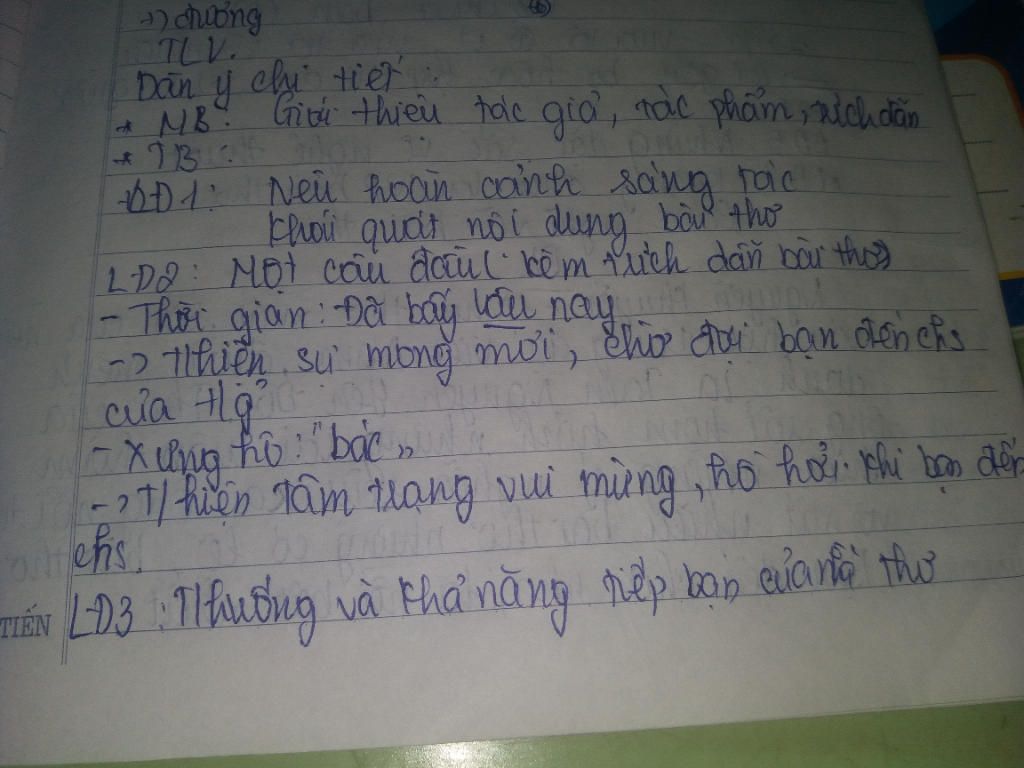 => chưởng
TLV.
Dàn ý chi tiết :
* MB: Giới thiệu tác giả, tác phẩm, trích dẫn
* TB :
LĐ1: Nêu hoàn cảnh sáng tác
Khái quát nội dung bài thơ
LĐ2: Một câu đầu ( kèm trích dẫn bài thơ)
- Thời gian: Đã bấy lâu nay
-> T/hiện sự mong mỏi, chờ đợi bạn đến chs
của t/g
- Xưng hô: "bác"
-> T/hiện tâm trạng vui mừng, hồ hởi khi bạn đến
chs.
LĐ3: T/huống và khả năng tiếp bạn của nhà thơ
TIẾN